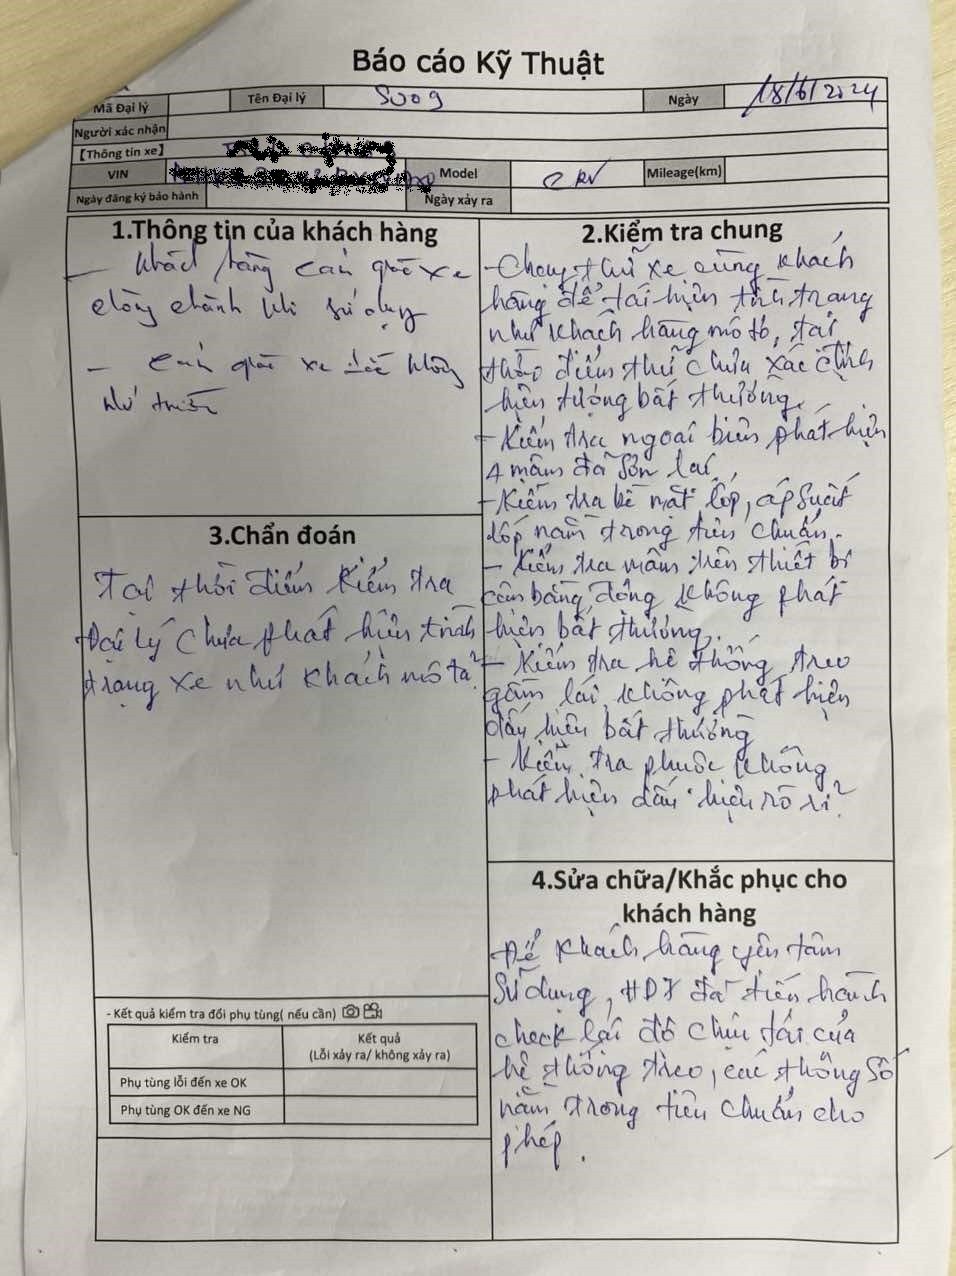 Báo cáo Kỹ Thuật
Mã Đại lý
Tên Đại lý
S009
Ngày
18/6/2024
Người xác nhận
【Thông tin xe】
VIN
Model
CRV
Mileage(km)
Ngày đăng ký bảo hành
Ngày xảy ra
1.Thông tin của khách hàng
- Khách hàng cảm giác xe
khi sử dụng
- Cảm giác xe không
như trước
2.Kiểm tra chung
- Chạy thử xe cùng khách
hàng để tái hiện tình trạng
như khách hàng mô tả, tại
thời điểm thử chưa xác định
hiện tượng bất thường.
- Kiểm tra ngoại biên phát hiện
4 mâm đã sơn lại
- Kiểm tra bề mặt lốp, áp suất
lốp nằm trong tiêu chuẩn.
- Kiểm tra mâm trên thiết bị
cân bằng động không phát
hiện bất thường.
- Kiểm tra hệ thống treo
gầm lái không phát hiện
dấu hiệu bất thường
- Kiểm tra phuộc không
phát hiện dấu hiệu rò rỉ
3.Chẩn đoán
Tại thời điểm kiểm tra
Đại lý chưa phát hiện tình
trạng xe như khách mô tả
- Kết quả kiểm tra đổi phụ tùng( nếu cần)
Kiểm tra
Kết quả
(Lỗi xảy ra/ không xảy ra)
Phụ tùng lỗi đến xe OK
Phụ tùng OK đến xe NG
4.Sửa chữa/Khắc phục cho
khách hàng
Để khách hàng yên tâm
sử dụng, đã tiến hành
check lại độ chịu tải của
hệ thống treo, các thông số
nằm trong tiêu chuẩn cho
phép.